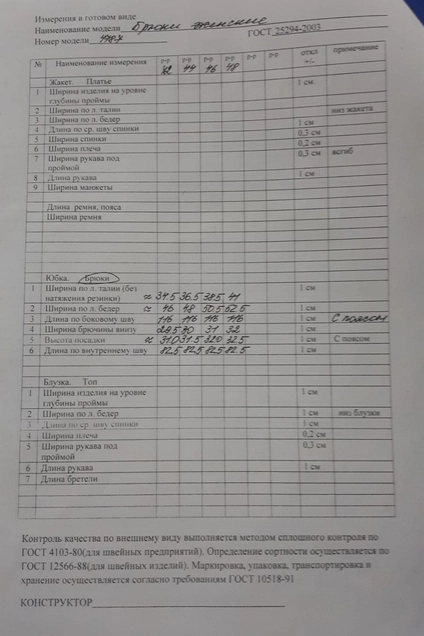 Измерения в готовом виде
Наименование модели Брюки женские
Номер модели ГОСТ 25294-2003
№ Наименование измерения р-р 42 р-р 44 р-р 46 р-р 48 р-р р-р откл +/- примечание
Жакет. Платье 1 см
1 Ширина изделия на уровне
глубины проймы
2 Ширина по л. талии низ жакета
3 Ширина по л. бедер 1 см
4 Длина по ср. шву спинки 0,3 см
5 Ширина спинки 0,2 см
6 Ширина плеча 0,3 см всгиб
7 Ширина рукава под
проймой
8 Длина рукава 1 см
9 Ширина манжеты
Длина ремня, пояса
Ширина ремня
Юбка. Брюки
1 Ширина по л. талии (без
натяжения резинки) ≈ 34.5 36.5 38.5 41 1 см
2 Ширина по л. бедер ≈ 46 48 50.5 52.5 1 см
3 Длина по боковому шву 116 116 116 116 1 см С поясом
4 Ширина брючины внизу 29.5 30 31 32 1 см
5 Высота посадки ≈ 31.0 31.5 32.0 32.5 1 см С поясом
6 Длина по внутреннему шву 82.5 82.5 82.5 82.5 1 см
Блузка. Топ
1 Ширина изделия на уровне 1 см
глубины проймы
2 Ширина по л. бедер 1 см низ блузки
3 Длина по ср. шву спинки 1 см
4 Ширина плеча 0,2 см
5 Ширина рукава под 0,3 см
проймой
6 Длина рукава 1 см
7 Длина бретели
Контроль качества по внешнему виду выполняется методом сплошного контроля по
ГОСТ 4103-80(для швейных предприятий). Определение сортности осуществляется по
ГОСТ 12566-88(для швейных изделий). Маркировка, упаковка, транспортировка и
хранение осуществляется согласно требованиям ГОСТ 10518-91
КОНСТРУКТОР